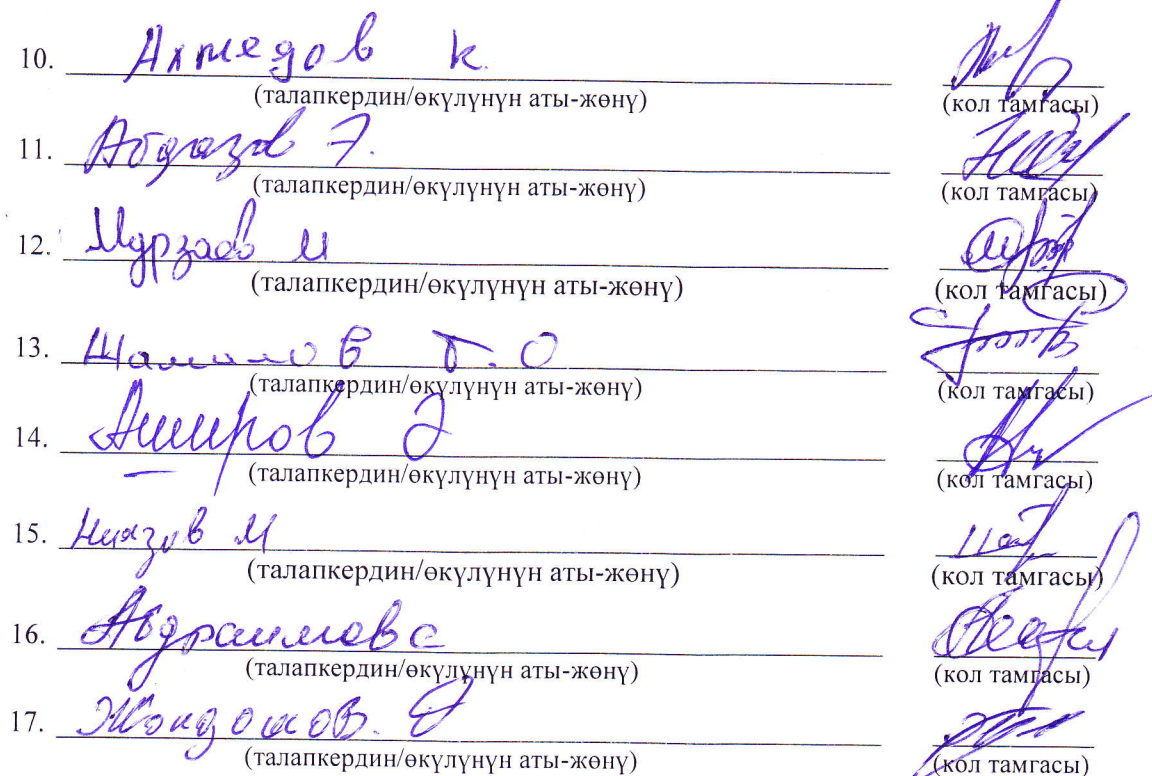 10. Ахмедов К.
(талапкердин/өкүлүнүн аты-жөнү) (кол тамгасы)
11. Абдразов Э.
(талапкердин/өкүлүнүн аты-жөнү) (кол тамгасы)
12. Мурзаев М
(талапкердин/өкүлүнүн аты-жөнү) (кол тамгасы)
13. Шамилов Т.О
(талапкердин/өкүлүнүн аты-жөнү) (кол тамгасы)
14. Аширов Э
(талапкердин/өкүлүнүн аты-жөнү) (кол тамгасы)
15. Ниязов М
(талапкердин/өкүлүнүн аты-жөнү) (кол тамгасы)
16. Абдраимов С
(талапкердин/өкүлүнүн аты-жөнү) (кол тамгасы)
17. Жондошов.
(талапкердин/өкүлүнүн аты-жөнү) (кол тамгасы)